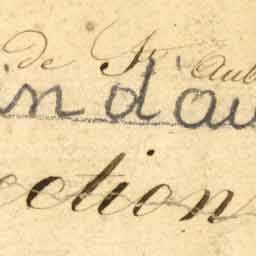 de St Aub
indau
ection